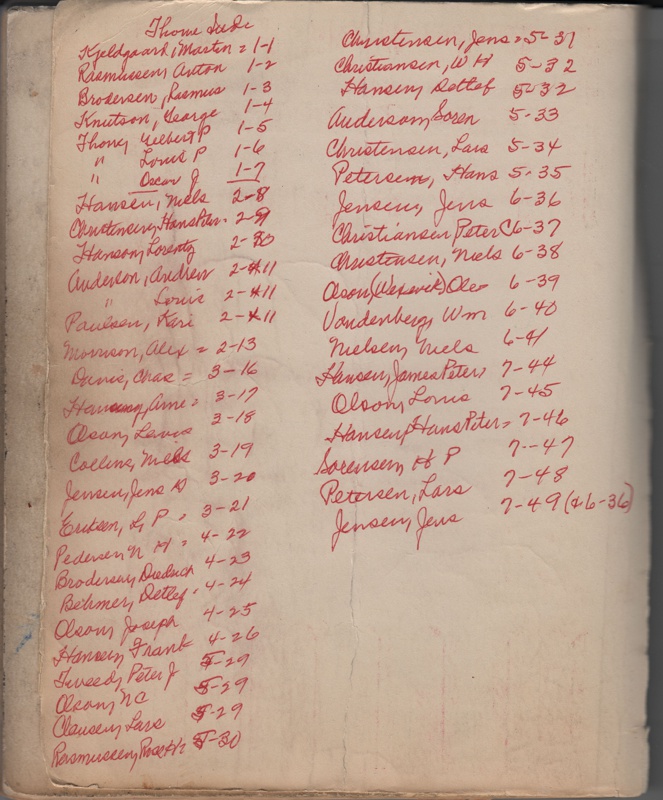 Kjeldgaard, Martin = 1-1
Rasmussen, Anton 1-2
Brodersen, Rasmus 1-3
Knutson, George 1-4
Thone, Gilbert P 1-5
" Louis P 1-6
" Oscar J 1-7
Hansen, Niels 2-8
Christensen, Hans Peter = 2-9
Hanson, Lorentz 2-10
Anderson, Andrew 2-11
" Louis 2-11
Paulsen, Kari 2-11
Morrison, Alex = 2-13
Davis, Chas = 3-16
Arne = 3-17
Olson, Lewis 3-18
Collins, Niels 3-19
Jensen, Jens 3-20
Eriksen, L P = 3-21
Pedersen N H = 4-22
Brodersen, Diedrich 4-23
Böhmer, Detlef = 4-24
Olson, Joseph 4-25
Hansen, Frank 4-26
Tweedy Peter J 5-29
Olson, NC 5-29
Clausen, Lars 5-29
Rasmussen, = 5-30
Christensen, Jens = 5-31
Christiansen, W H 5-32
Hansen, Detlef 5-32
Anderson, Soren 5-33
Christensen, Lars 5-34
Petersen, Hans 5-35
Jensen, Jens 6-36
Christiansen, Peter C 6-37
Christensen, Niels 6-38
Olson Ole 6-39
Vandenberg, Wm 6-40
Nielsen, Niels 6-41
Hansen, James Peter, 7-44
Olson, Louis 7-45
Hansen, Hans Peter = 7-46
Sorensen, H P 7-47
Petersen, Lars 7-48
Jensen, Jens 7-49 (&6-36)